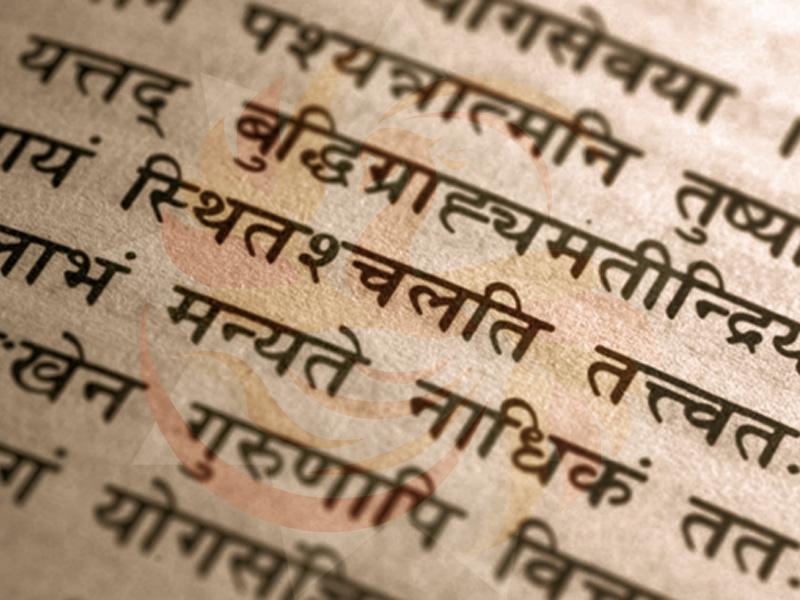 योगसेवया ।
पश्यन्नात्मनि तुष्य
यत्तद् बुद्धिग्राह्यमतीन्द्रिय
स्थितश्चलति तत्त्वत
लाभं मन्यते नाधिकं तत
खेन गुरुणापि विच
योगसंज्ञि